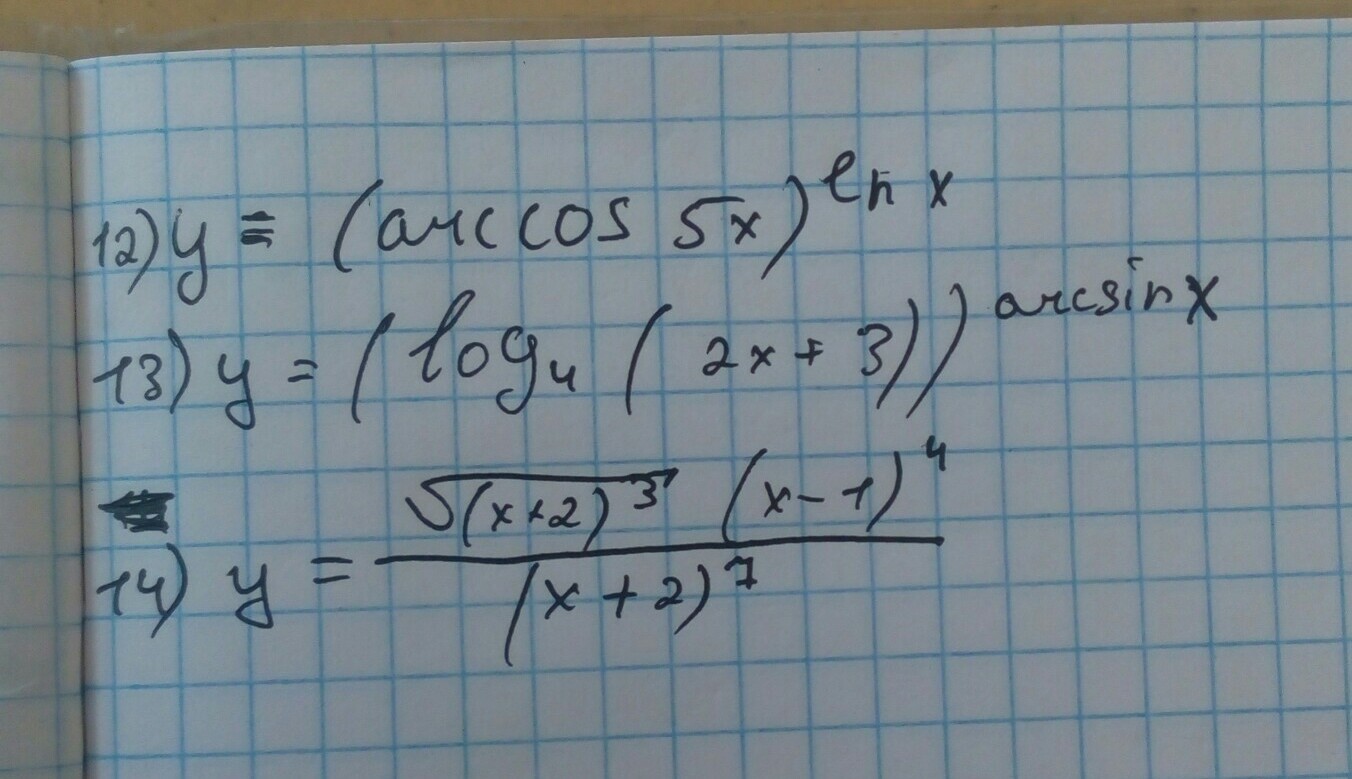 12) y = (arccos 5x)^ln x
13) y = (log₄ (2x + 3))^arcsin x
14) y = √(x+2)³ (x-1)⁴ / (x+2)⁷